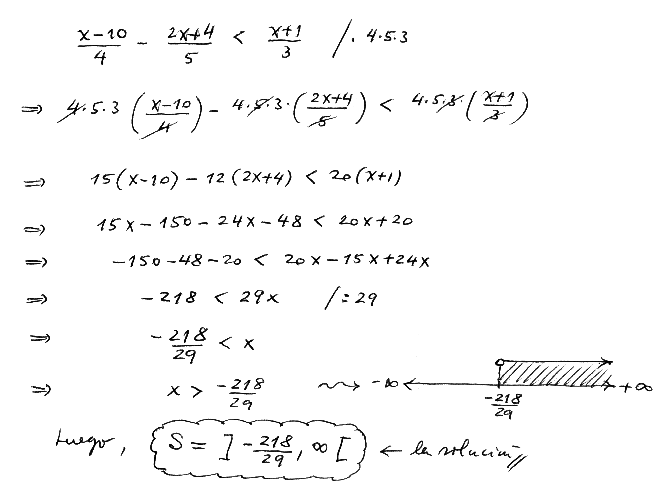 (x-10)/4 - (2x+4)/5 < (x+1)/3 /· 4·5·3
⇒ 4·5·3 ((x-10)/4) - 4·5·3·((2x+4)/5) < 4·5·3·((x+1)/3)
⇒ 15(x-10) - 12(2x+4) < 20(x+1)
⇒ 15x - 150 - 24x - 48 < 20x + 20
⇒ -150 - 48 - 20 < 20x - 15x + 24x
⇒ -218 < 29x /:29
⇒ -218/29 < x
⇒ x > -218/29 ⇝ -∞ -218/29 +∞
Luego, S = ] -218/29, ∞ [ ← la solución //